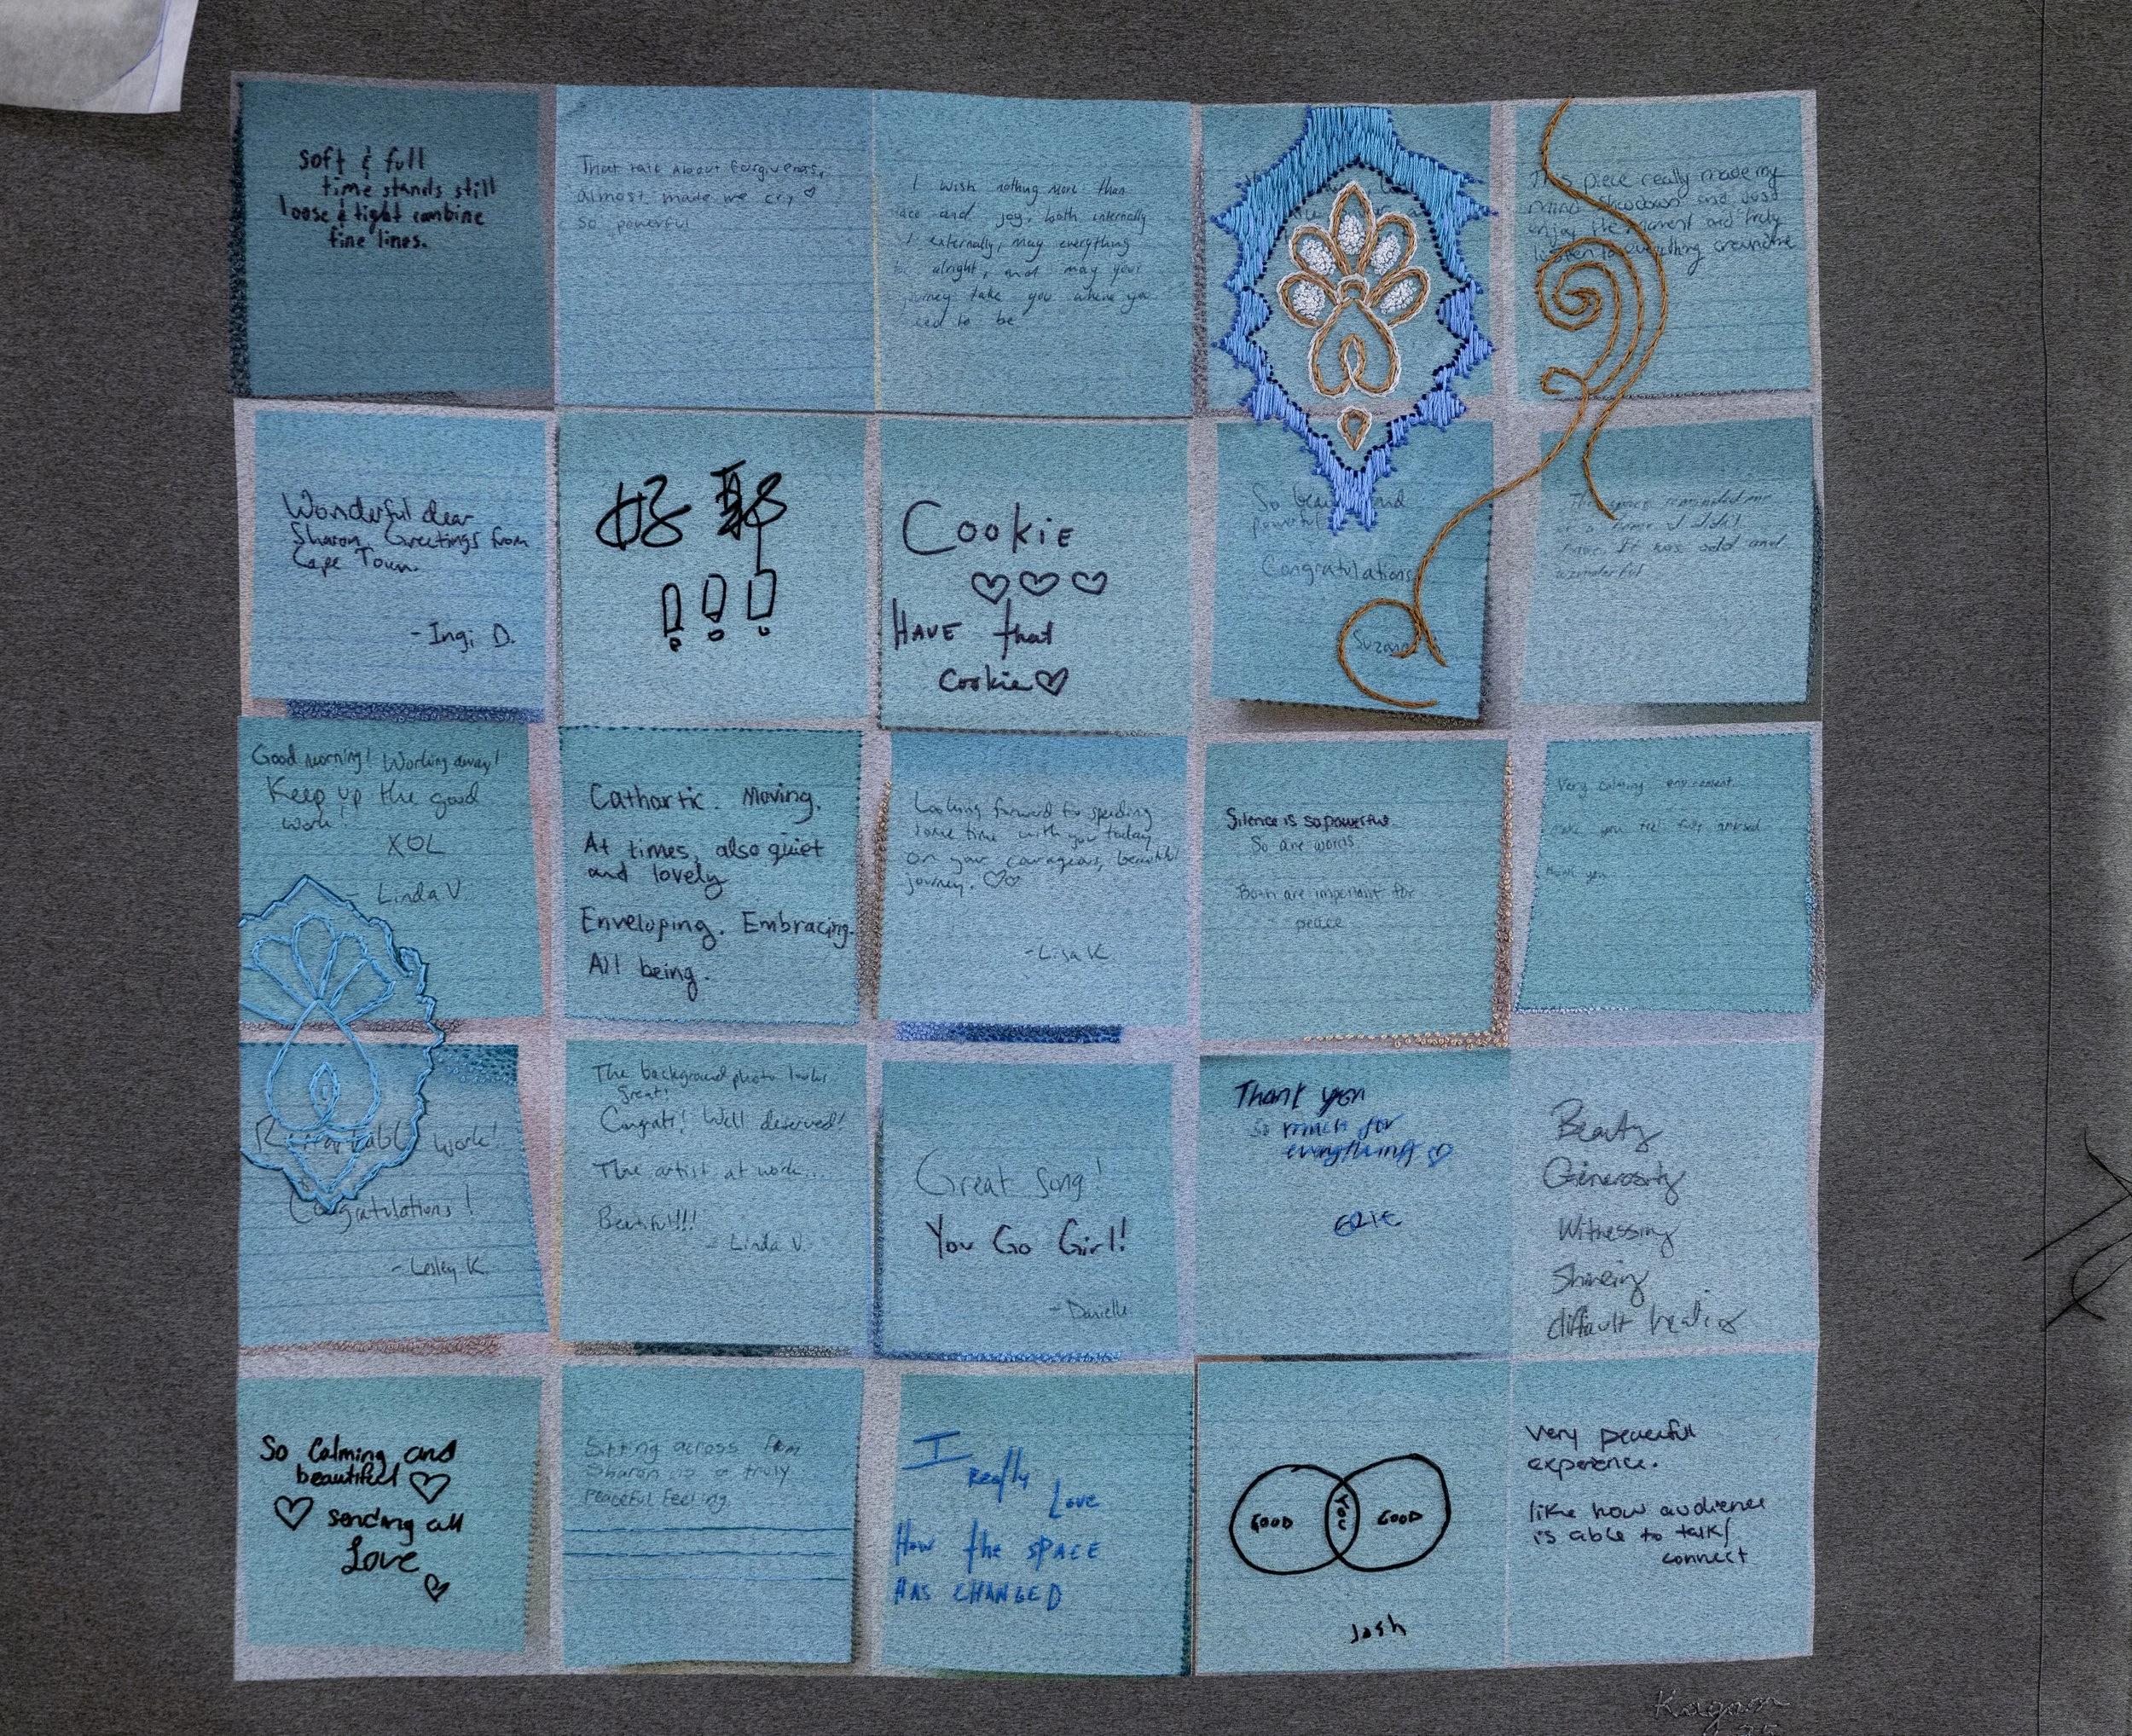 soft & full
time stands still
loose & tight combine
fine lines.
That talk About forgiveness,
almost made me cry ♡
so powerful
I wish nothing more than
and joy, both internally
externally, may everything
alright, and may your
take you where you
to be
This piece really made my
mind slowdown and just
enjoy the moment and truly
listen to everything around me
Wonderful dear
Sharon. Greetings from
Cape Town.
- Ingi D.
好耶
!!!
Cookie
♡♡♡
HAVE that
cookie♡
So beautiful and
powerful
Congratulations
reminded me
of a time I didn't
It was odd and
wonderful
Good morning! Working away!
Keep up the good
work!
XOL
- Linda V.
Cathartic. Moving.
At times, also quiet
and lovely
Enveloping. Embracing.
All being.
Looking forward to spending
some time with you today
on your courageous, beautiful
journey. ♡♡
- Lisa K
Silence is so powerful
So are words
Both are important for
peace
Very calming environment
make you feel fully
thank you
Remarkable work!
Congratulations!
- Lesley K.
The background photo looks
great!
Congrats! Well deserved!
The artist at work...
Beautiful!!!
- Linda V.
Great Song!
You Go Girl!
- Danielle
Thank you
so much for
everything ♡
Beauty
Generosity
Witnessing
Sharing
difficult healing
So Calming and
beautiful ♡
♡ sending all
Love
♡
Sitting across from
Sharon is a truly
peaceful feeling
I
really Love
How the SPACE
HAS CHANGED
GOOD YOU GOOD
Josh
Very peaceful
experience.
like how audience
is able to talk/
connect
Kagan